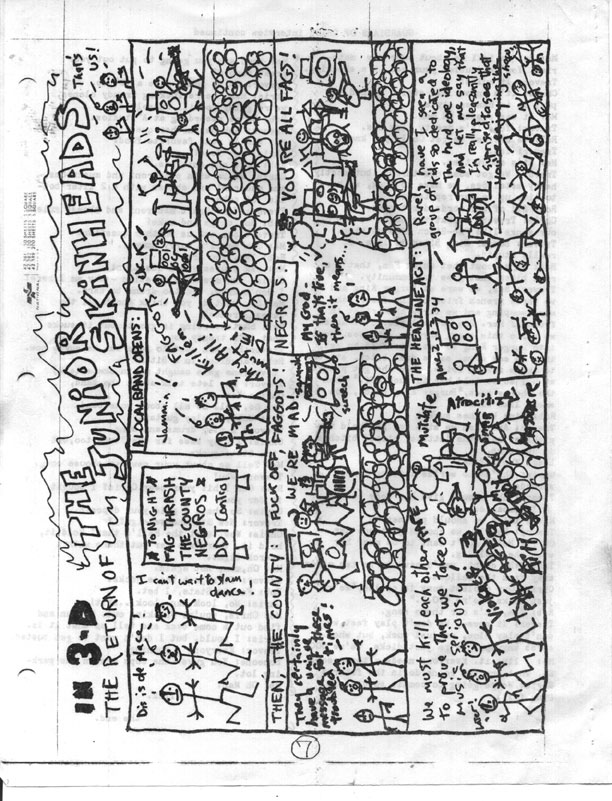 IN 3-D
THE RETURN OF THE JUNIOR SKINHEADS
That's
us!
Dis is de place!
I can't wait to slam
dance!
TONIGHT
FAG THRASH
THE COUNTY
NEGROS
DDT Control
A LOCAL BAND OPENS:
Jammin!!
Kill!
They must All
DIE!
FAGGOTS
SUCK!
THEN, THE COUNTY:
They certainly
have a unique
message for these
troubled times!
FUCK OFF, FAGGOTS!
WE'RE MAD!
squonk
screech
NEGROS:
My God—
If that's true,
then it means...
YOU'RE ALL FAGS!
We must kill each other
to prove that we take our
music seriously!
Mutilate
Atrocities
THE HEADLINE ACT:
1234
Rarely have I seen a
group of kids so dedicated to
the hard core ideology,
And let me say that
I'm really pleasantly
surprised to see that
7